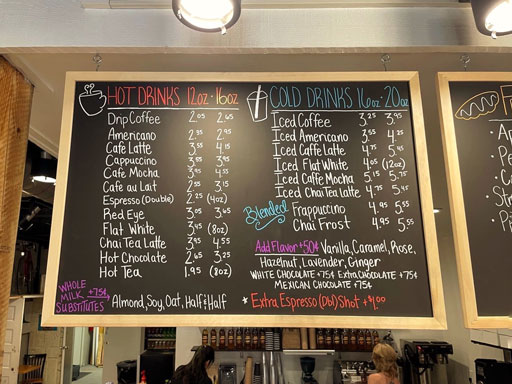 HOT DRINKS 12oz · 16oz
Drip Coffee 2.05 2.65
Americano 2.95
Cafe Latte 3.55 4.15
Cappuccino 3.55 3.95
Cafe Mocha 3.95 4.55
Cafe au Lait 2.55 3.15
Espresso (Double) 2.25 (4oz)
Red Eye 3.05 3.65
Flat White 3.45 (8oz)
Chai Tea Latte 3.95 4.55
Hot Chocolate 2.65 3.25
Hot Tea 1.95 (8oz)
WHOLE
MILK +75¢
SUBSTITUTES
Almond, Soy, Oat, Half & Half
COLD DRINKS 16oz · 20oz
Iced Coffee 3.25 3.95
Iced Americano 3.55 4.25
Iced Caffe Latte 4.75 5.45
Iced Flat White 4.05 (12oz)
Iced Caffe Mocha 5.15 5.75
Iced Chai Tea Latte 4.75 5.45
Blended
Frappuccino 4.95 5.55
Chai Frost 4.95 5.55
Add Flavor +50¢ Vanilla, Caramel, Rose,
Hazelnut, Lavender, Ginger
WHITE CHOCOLATE +75¢ Extra CHOCOLATE +75¢
MEXICAN CHOCOLATE +75¢
* Extra Espresso (Dbl) Shot +$1.00